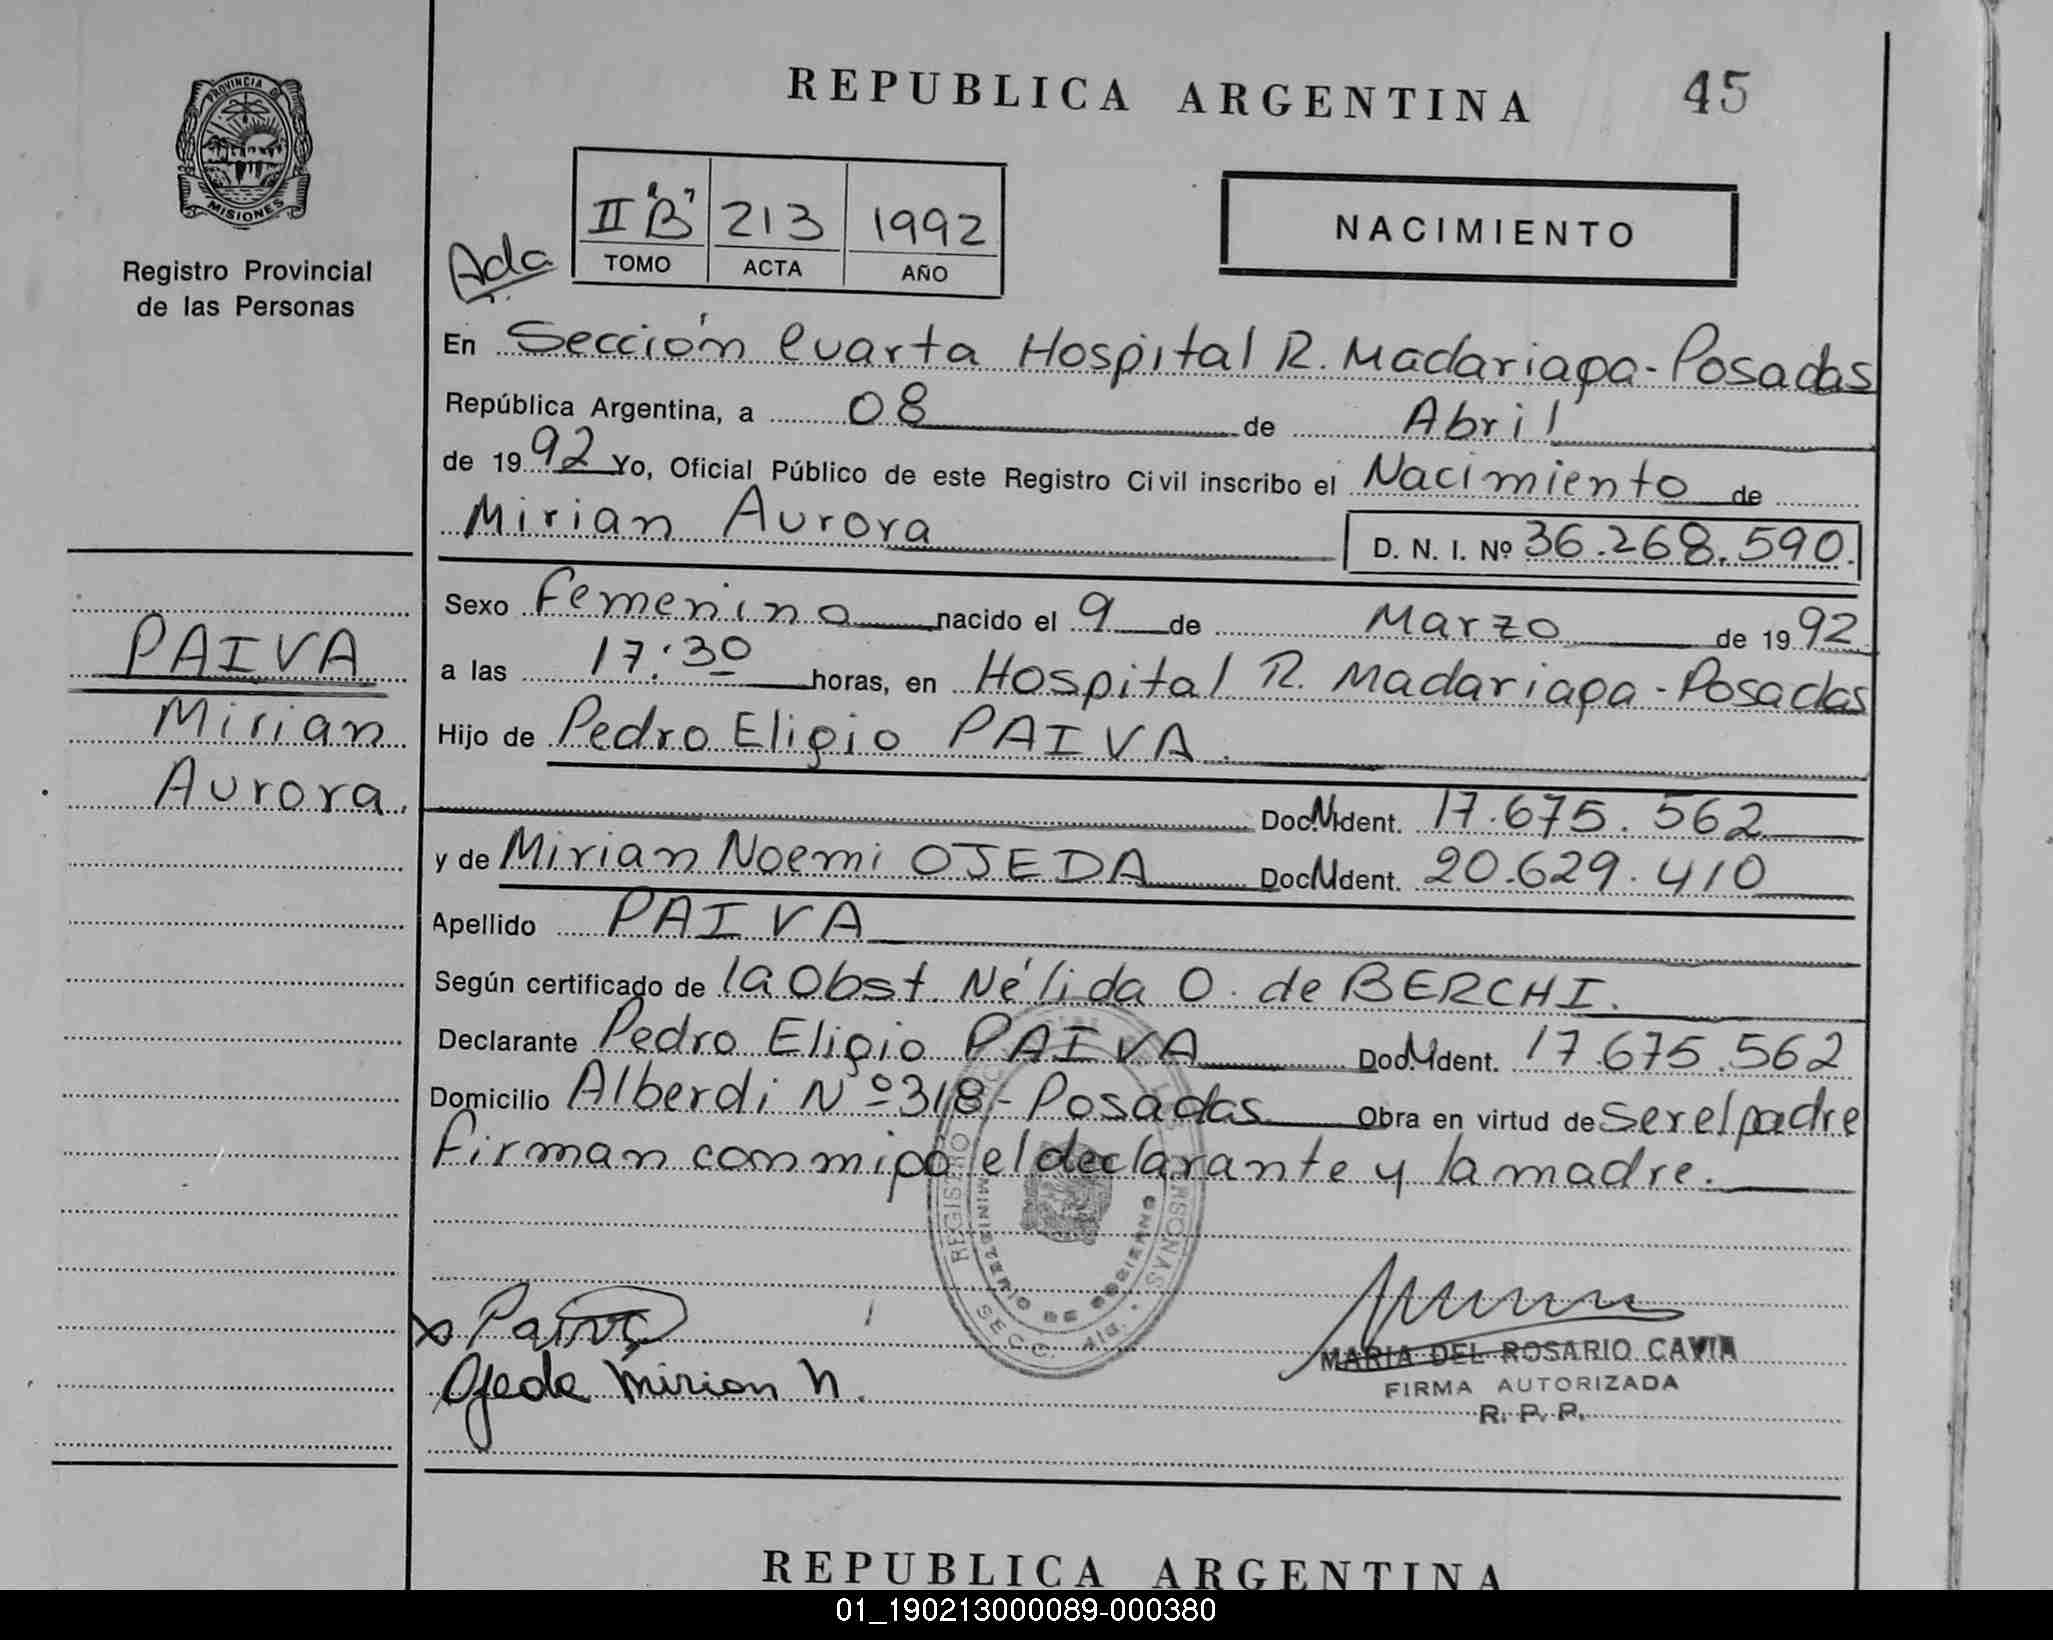 REPUBLICA ARGENTINA 45
PROVINCIA DE
MISIONES
Registro Provincial
de las Personas
Ada
II "B" 213 1992
TOMO ACTA AÑO
NACIMIENTO
En Sección Cuarta Hospital R. Madariaga - Posadas
República Argentina, a 08 de Abril
de 1992 Yo, Oficial Público de este Registro Civil inscribo el Nacimiento de
Mirian Aurora D. N. I. Nº 36.268.590.
Sexo Femenino nacido el 9 de Marzo de 1992
a las 17:30 horas, en Hospital R. Madariaga - Posadas
Hijo de Pedro Eligio PAIVA.
Doc. N Ident. 17.675.562
y de Mirian Noemi OJEDA Doc N Ident. 20.629.410
Apellido PAIVA
Según certificado de la Obst. Nélida O. de BERCHI.
Declarante Pedro Eligio PAIVA Doc. N Ident. 17.675.562
Domicilio Alberdi Nº 318 - Posadas Obra en virtud de ser el padre
firman conmigo el declarante y la madre.
PAIVA
Mirian
Aurora
REGISTRO PERSONAS
MINISTERIO DE GOBIERNO
SECC. 4ta.
Paiva
Ojeda Mirian N.
MARIA DEL ROSARIO CAVIA
FIRMA AUTORIZADA
R. P. P.
REPUBLICA ARGENTINA
01_190213000089-000380